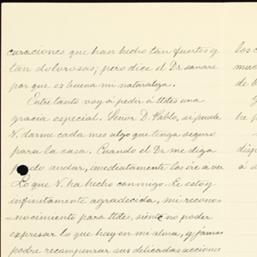 curaciones que han hecho tan fuertes y
tan dolorosas, pero dice el Dr. sanare
por que es buena mi naturaleza.
Entre tanto voy á pedir á Udes una
gracia especial. Señor D. Pablo, si puede
V. darme cada mes algo que tenga seguro
para la casa. Cuando el Dr me diga
puedo andar, inmediatamente los iré a ver
Lo que V. ha hecho conmigo. Le estoy
infinitamente agradecida, mi recono-
nocimiento para Udes, siento no poder
expresar lo que hay en mi alma, y jamas
podre recompensar sus delicadas acciones
los c
muc
de b
be p
disp
á s